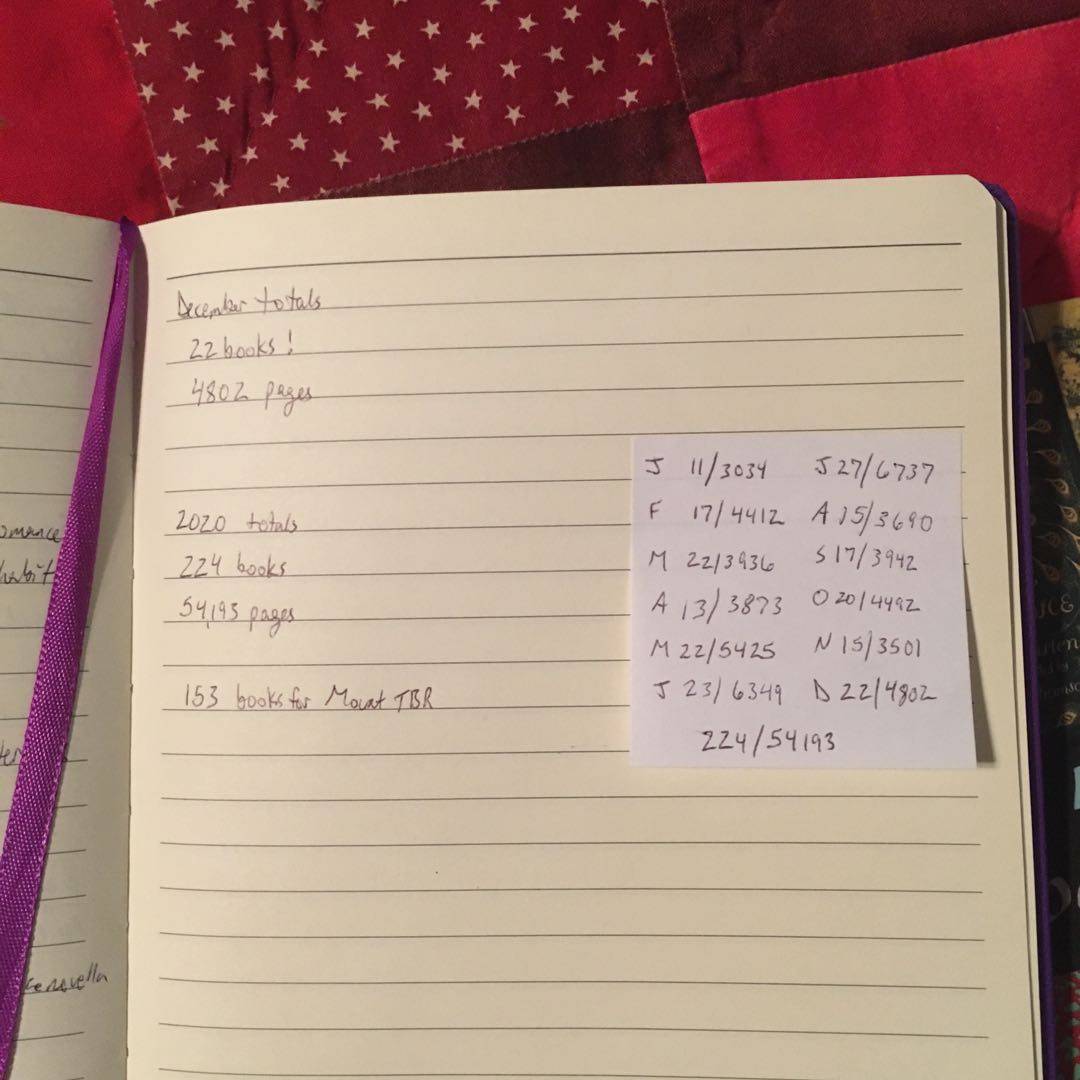 December totals
22 books!
4802 pages
2020 totals
224 books
54,193 pages
153 books for Mount TBR
J 11/3034 J 27/6737
F 17/4412 A 15/3690
M 22/3936 S 17/3942
A 13/3873 O 20/4492
M 22/5425 N 15/3501
J 23/6349 D 22/4802
224/54193
novella